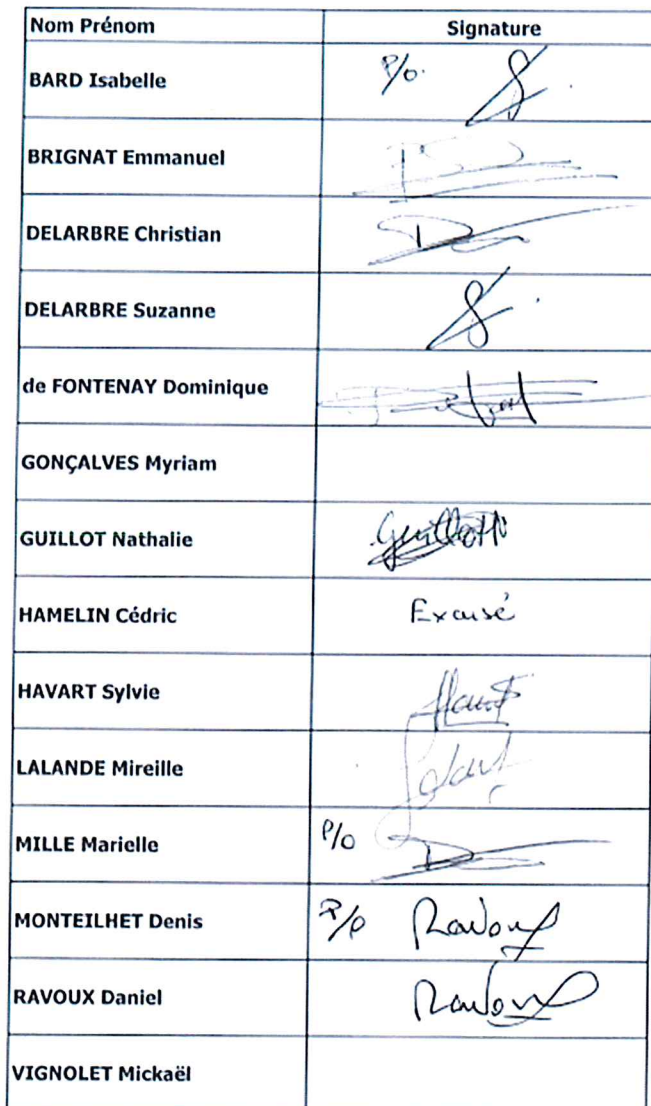 Nom Prénom Signature
BARD Isabelle P/o.
BRIGNAT Emmanuel
DELARBRE Christian
DELARBRE Suzanne
de FONTENAY Dominique
GONÇALVES Myriam
GUILLOT Nathalie Guillot
HAMELIN Cédric Excusé
HAVART Sylvie
LALANDE Mireille
MILLE Marielle P/o
MONTEILHET Denis P/o Ravoux
RAVOUX Daniel Ravoux
VIGNOLET Mickaël